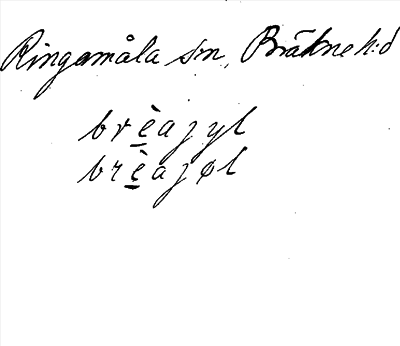 Ringamåla sn, Bräkne h:d
brèajyl
brèajøl